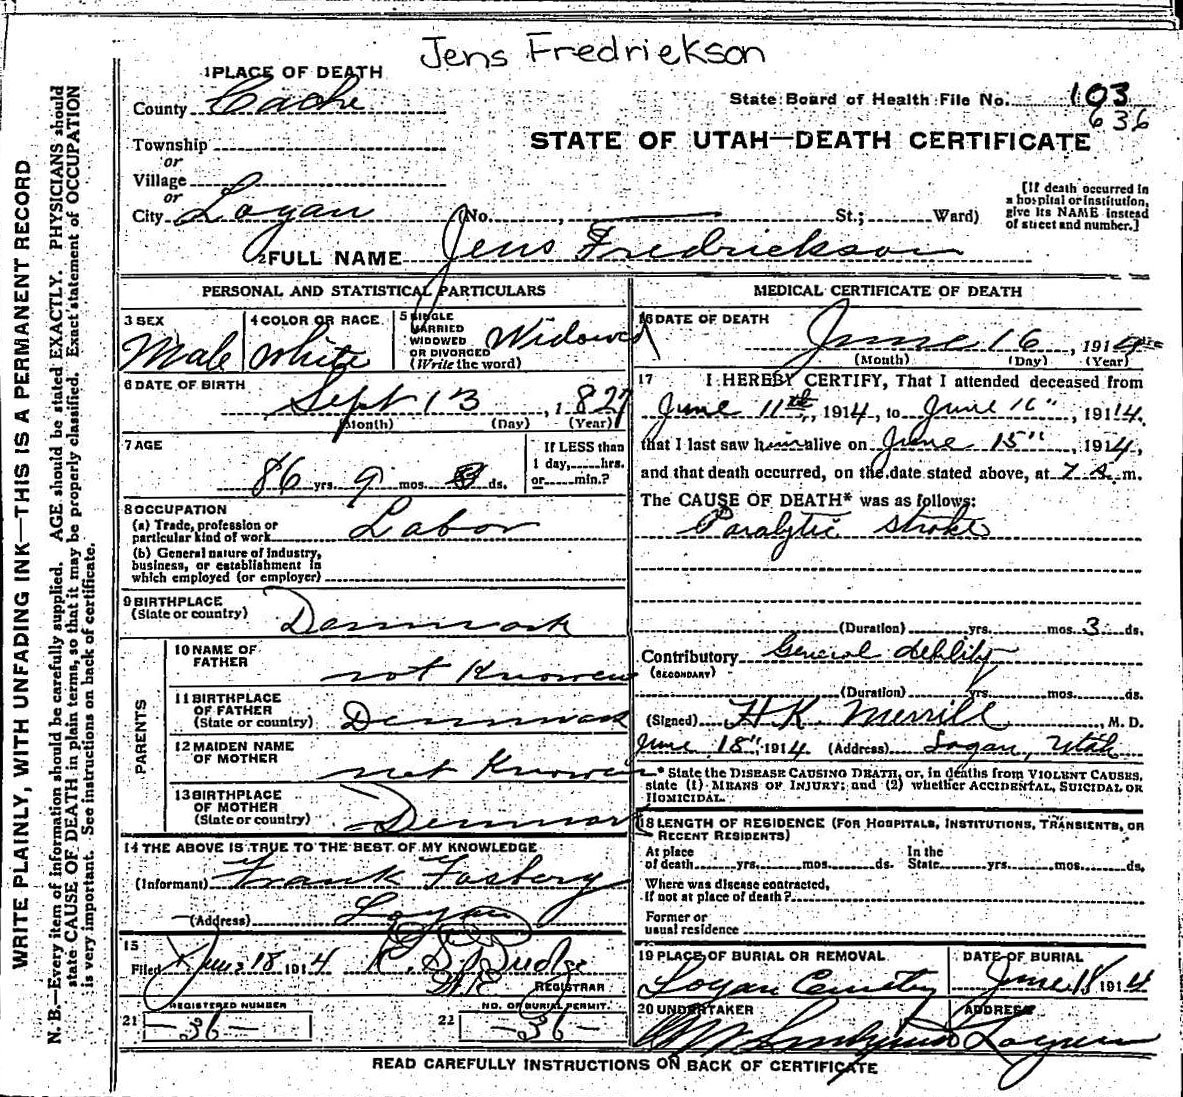 Jens Fredriekson
1 PLACE OF DEATH
County Cache
State Board of Health File No. 103
636
STATE OF UTAH—DEATH CERTIFICATE
Township
or
Village
or
City Logan (No. , St.; Ward)
[If death occurred in
a hospital or institution,
give its NAME instead
of street and number.]
2 FULL NAME Jens Fredrickson
PERSONAL AND STATISTICAL PARTICULARS
3 SEX
Male
4 COLOR OR RACE
White
5 SINGLE
MARRIED
WIDOWED
OR DIVORCED
(Write the word)
Widowed
6 DATE OF BIRTH
Sept 13, 1827
(Month) (Day) (Year)
7 AGE
86 yrs. 9 mos. 3 ds.
If LESS than
1 day, hrs.
or min.?
8 OCCUPATION
(a) Trade, profession or
particular kind of work Labor
(b) General nature of industry,
business, or establishment in
which employed (or employer)
9 BIRTHPLACE
(State or country) Denmark
PARENTS
10 NAME OF
FATHER not Knowen
11 BIRTHPLACE
OF FATHER
(State or country) Denmark
12 MAIDEN NAME
OF MOTHER not Knowen
13 BIRTHPLACE
OF MOTHER
(State or country) Denmark
14 THE ABOVE IS TRUE TO THE BEST OF MY KNOWLEDGE
(Informant) Frank Fosbery
(Address) Logan
15
Filed June 18 1914
REGISTRAR
REGISTERED NUMBER
21 —36—
NO. OF BURIAL PERMIT.
22 —36—
MEDICAL CERTIFICATE OF DEATH
16 DATE OF DEATH
June 16, 1914
(Month) (Day) (Year)
17 I HEREBY CERTIFY, That I attended deceased from
June 11th, 1914, to June 16", 1914,
that I last saw him alive on June 15", 1914,
and that death occurred, on the date stated above, at 7 A. m.
The CAUSE OF DEATH* was as follows:
Paralytic Stroke
(Duration) yrs. mos. 3 ds.
Contributory General debility
(SECONDARY)
(Duration) yrs. mos. ds.
(Signed) H.K. Merrill, M. D.
June 18", 1914 (Address) Logan, Utah
* State the DISEASE CAUSING DEATH, or, in deaths from VIOLENT CAUSES,
state (1) MEANS OF INJURY; and (2) whether ACCIDENTAL, SUICIDAL OR
HOMICIDAL.
18 LENGTH OF RESIDENCE (FOR HOSPITALS, INSTITUTIONS, TRANSIENTS, OR
RECENT RESIDENTS)
At place In the
of death yrs. mos. ds. State yrs. mos. ds.
Where was disease contracted,
if not at place of death?
Former or
usual residence
19 PLACE OF BURIAL OR REMOVAL
Logan Cemetery
DATE OF BURIAL
June 18 1914
20 UNDERTAKER
ADDRESS
Logan
READ CAREFULLY INSTRUCTIONS ON BACK OF CERTIFICATE
WRITE PLAINLY, WITH UNFADING INK—THIS IS A PERMANENT RECORD
N. B.—Every item of information should be carefully supplied. AGE should be stated EXACTLY. PHYSICIANS should
state CAUSE OF DEATH in plain terms, so that it may be properly classified. Exact statement of OCCUPATION
is very important. See instructions on back of certificate.